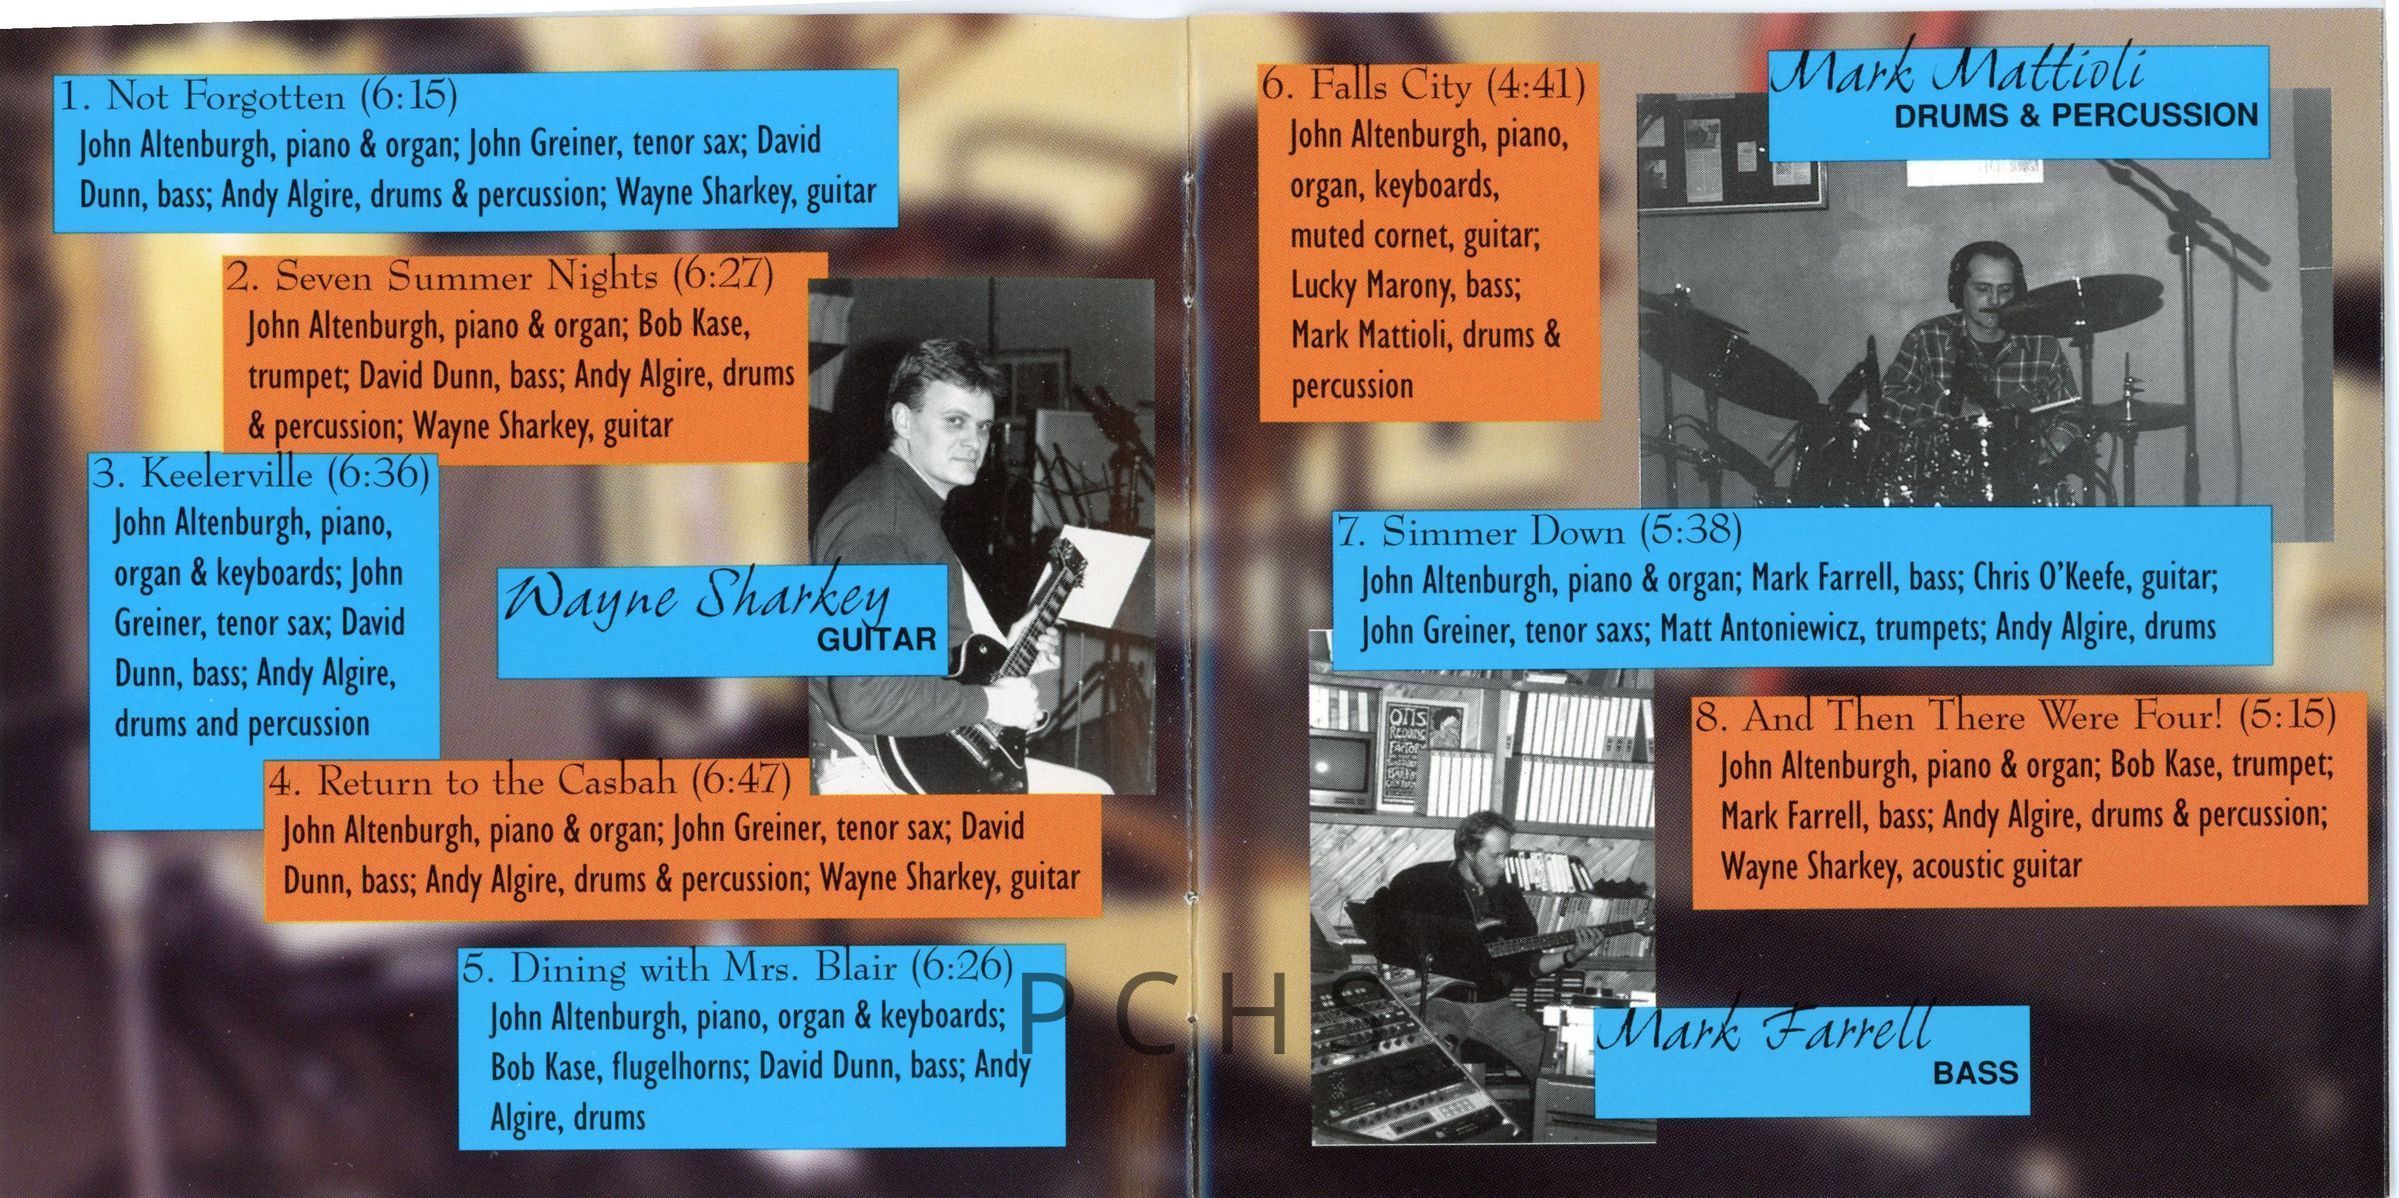 1. Not Forgotten (6:15)
John Altenburgh, piano & organ; John Greiner, tenor sax; David
Dunn, bass; Andy Algire, drums & percussion; Wayne Sharkey, guitar
2. Seven Summer Nights (6:27)
John Altenburgh, piano & organ; Bob Kase,
trumpet; David Dunn, bass; Andy Algire, drums
& percussion; Wayne Sharkey, guitar
3. Keelerville (6:36)
John Altenburgh, piano,
organ & keyboards; John
Greiner, tenor sax; David
Dunn, bass; Andy Algire,
drums and percussion
Wayne Sharkey
GUITAR
4. Return to the Casbah (6:47)
John Altenburgh, piano & organ; John Greiner, tenor sax; David
Dunn, bass; Andy Algire, drums & percussion; Wayne Sharkey, guitar
5. Dining with Mrs. Blair (6:26)
John Altenburgh, piano, organ & keyboards;
Bob Kase, flugelhorns; David Dunn, bass; Andy
Algire, drums
6. Falls City (4:41)
John Altenburgh, piano,
organ, keyboards,
muted cornet, guitar;
Lucky Marony, bass;
Mark Mattioli, drums &
percussion
Mark Mattioli
DRUMS & PERCUSSION
7. Simmer Down (5:38)
John Altenburgh, piano & organ; Mark Farrell, bass; Chris O'Keefe, guitar;
John Greiner, tenor saxs; Matt Antoniewicz, trumpets; Andy Algire, drums
OTIS
REDDING
8. And Then There Were Four! (5:15)
John Altenburgh, piano & organ; Bob Kase, trumpet;
Mark Farrell, bass; Andy Algire, drums & percussion;
Wayne Sharkey, acoustic guitar
Mark Farrell
BASS
PCHS